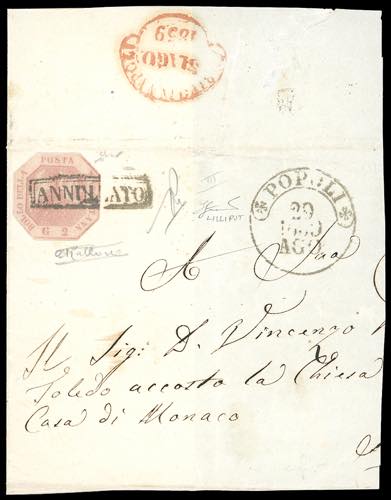 1859
POSTA
BOLLO DELLA
G 2
ANNULLATO
LILLIPUT
POPOLI
29
1859
AGO
A Sua
Il Sig: D. Vincenzo
Toledo accosto la Chiesa
Casa di Monaco